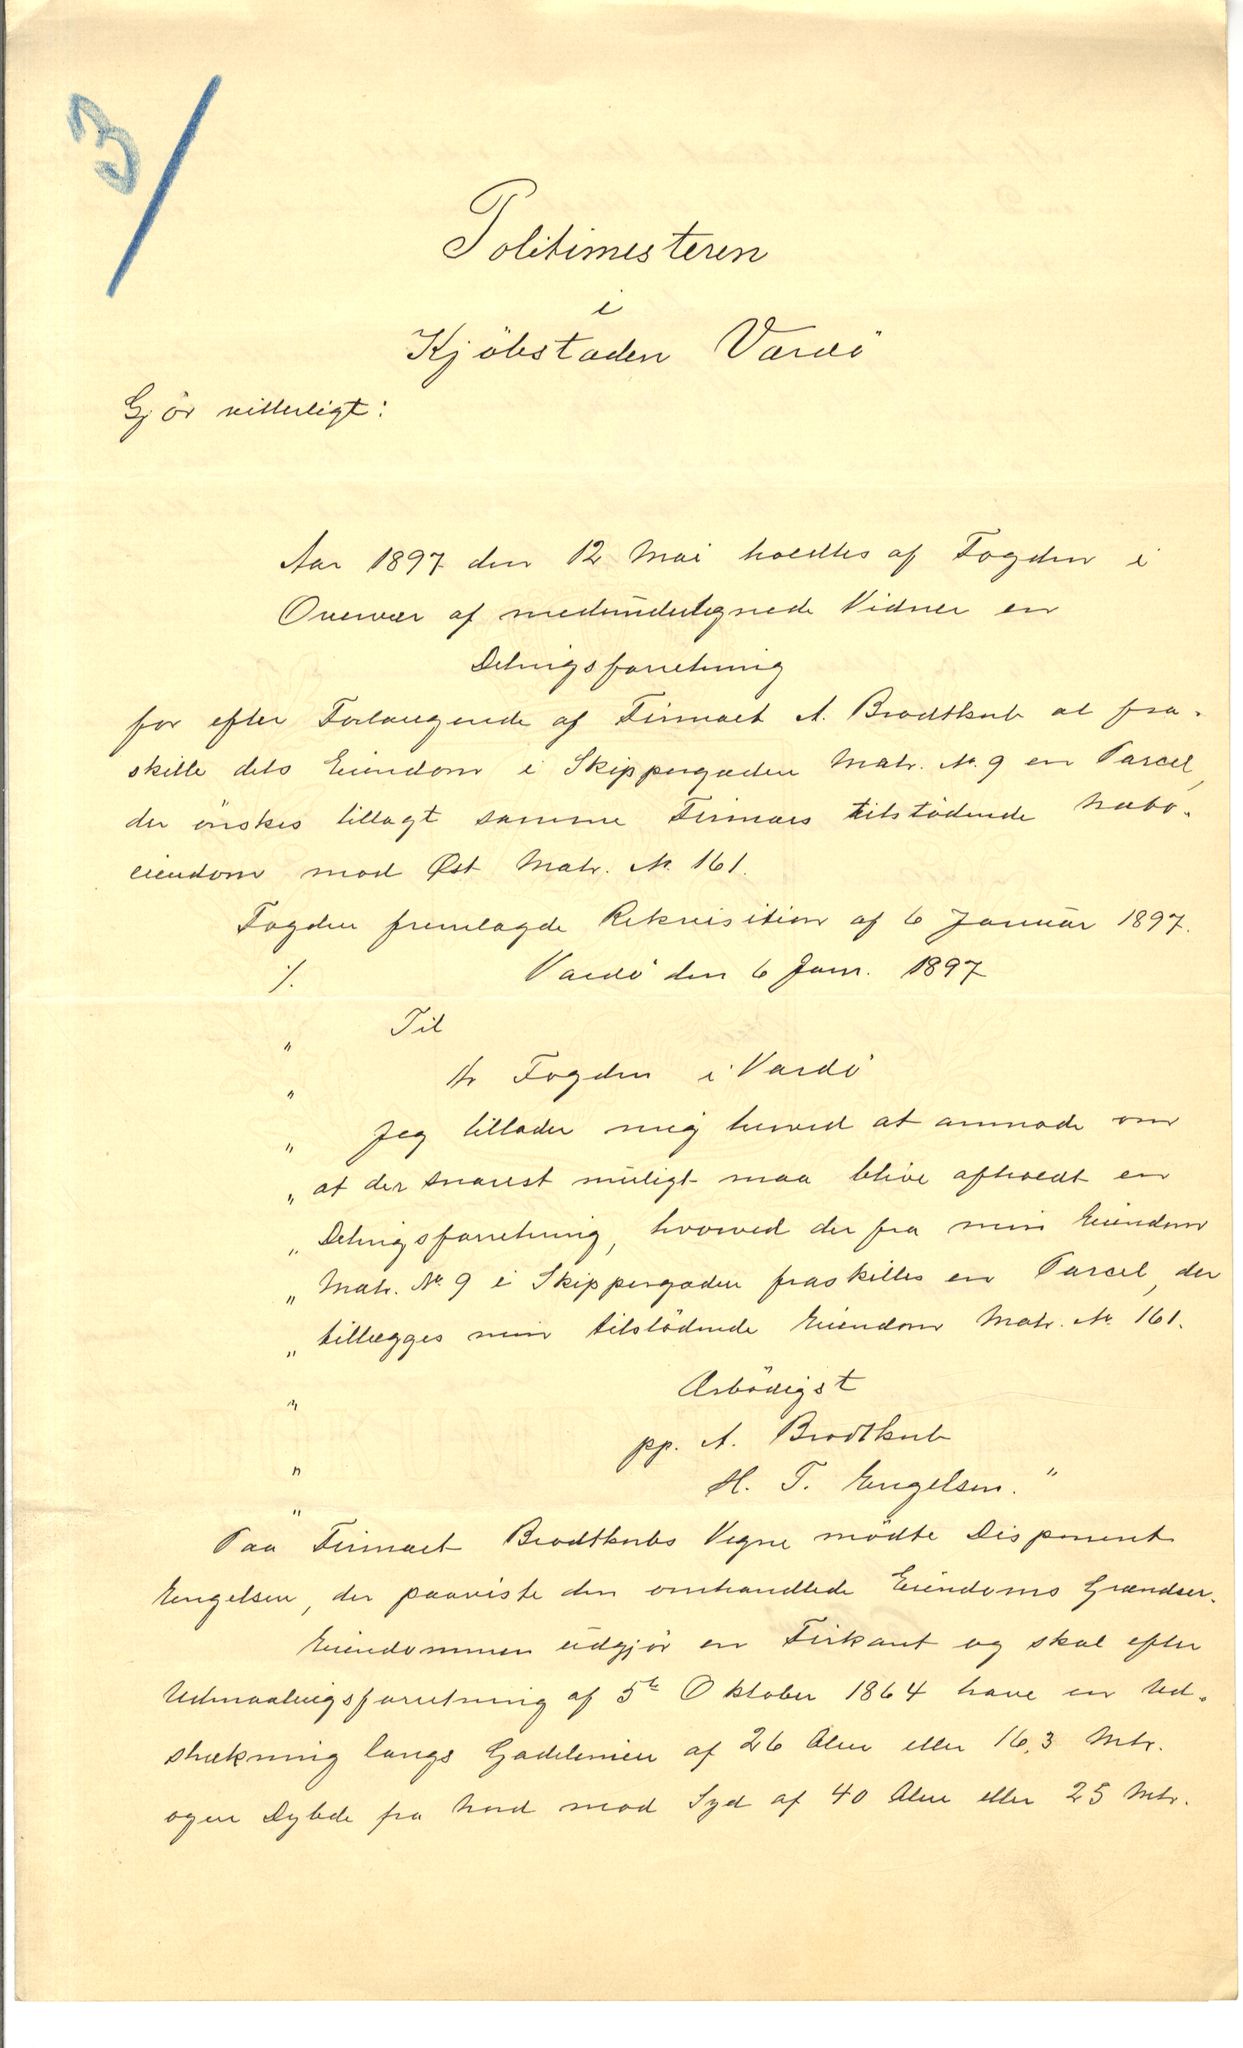 3
Politimesteren
i
Kjöbstaden Vardö
Gjör vitterligt:
Aar 1897 den 12 Mai holdtes af Fogden i
Overvær af medundertegnede Vidner en
Delingsforretning
for efter Forlangende af Firmaet A. Brodtkorb at fra-
skille dets Eiendom i Skippergaden Matr. No. 9 en Parcel,
der önskes tillagt samme Firmas tilstödende Nabo-
eiendom mod Øst Matr. No 161.
Fogden fremlagde Rekvisition af 6 Januar 1897.
./. Vardö den 6 Janr. 1897
" Til
" Hr Fogden i Vardö
" Jeg tillader mig herved at anmode om
" at der snarest muligt maa blive afholdt en
" Delingsforretning, hvorved der fra min Eiendom
" Matr. No. 9 i Skippergaden fraskilles en Parcel, der
" tillægges min tilstödende Eiendom Matr. No 161.
" Ærbödigst
pp. A. Brodtkorb
" H. T. Engelsen."
"
Paa Firmaet Brodtkorbs Vegne mödte Disponent
Engelsen, der paaviste den omhandlede Eiendoms Grændser.
Eiendommen udgjör en Firkant og skal efter
Udmaalingsforretning af 5te Oktober 1864 have en Ud-
strækning langs Gadelinien af 26 Alen eller 16,3 Mtr.
og en Dybde fra Nord mod Syd af 40 Alen eller 25 Mtr.